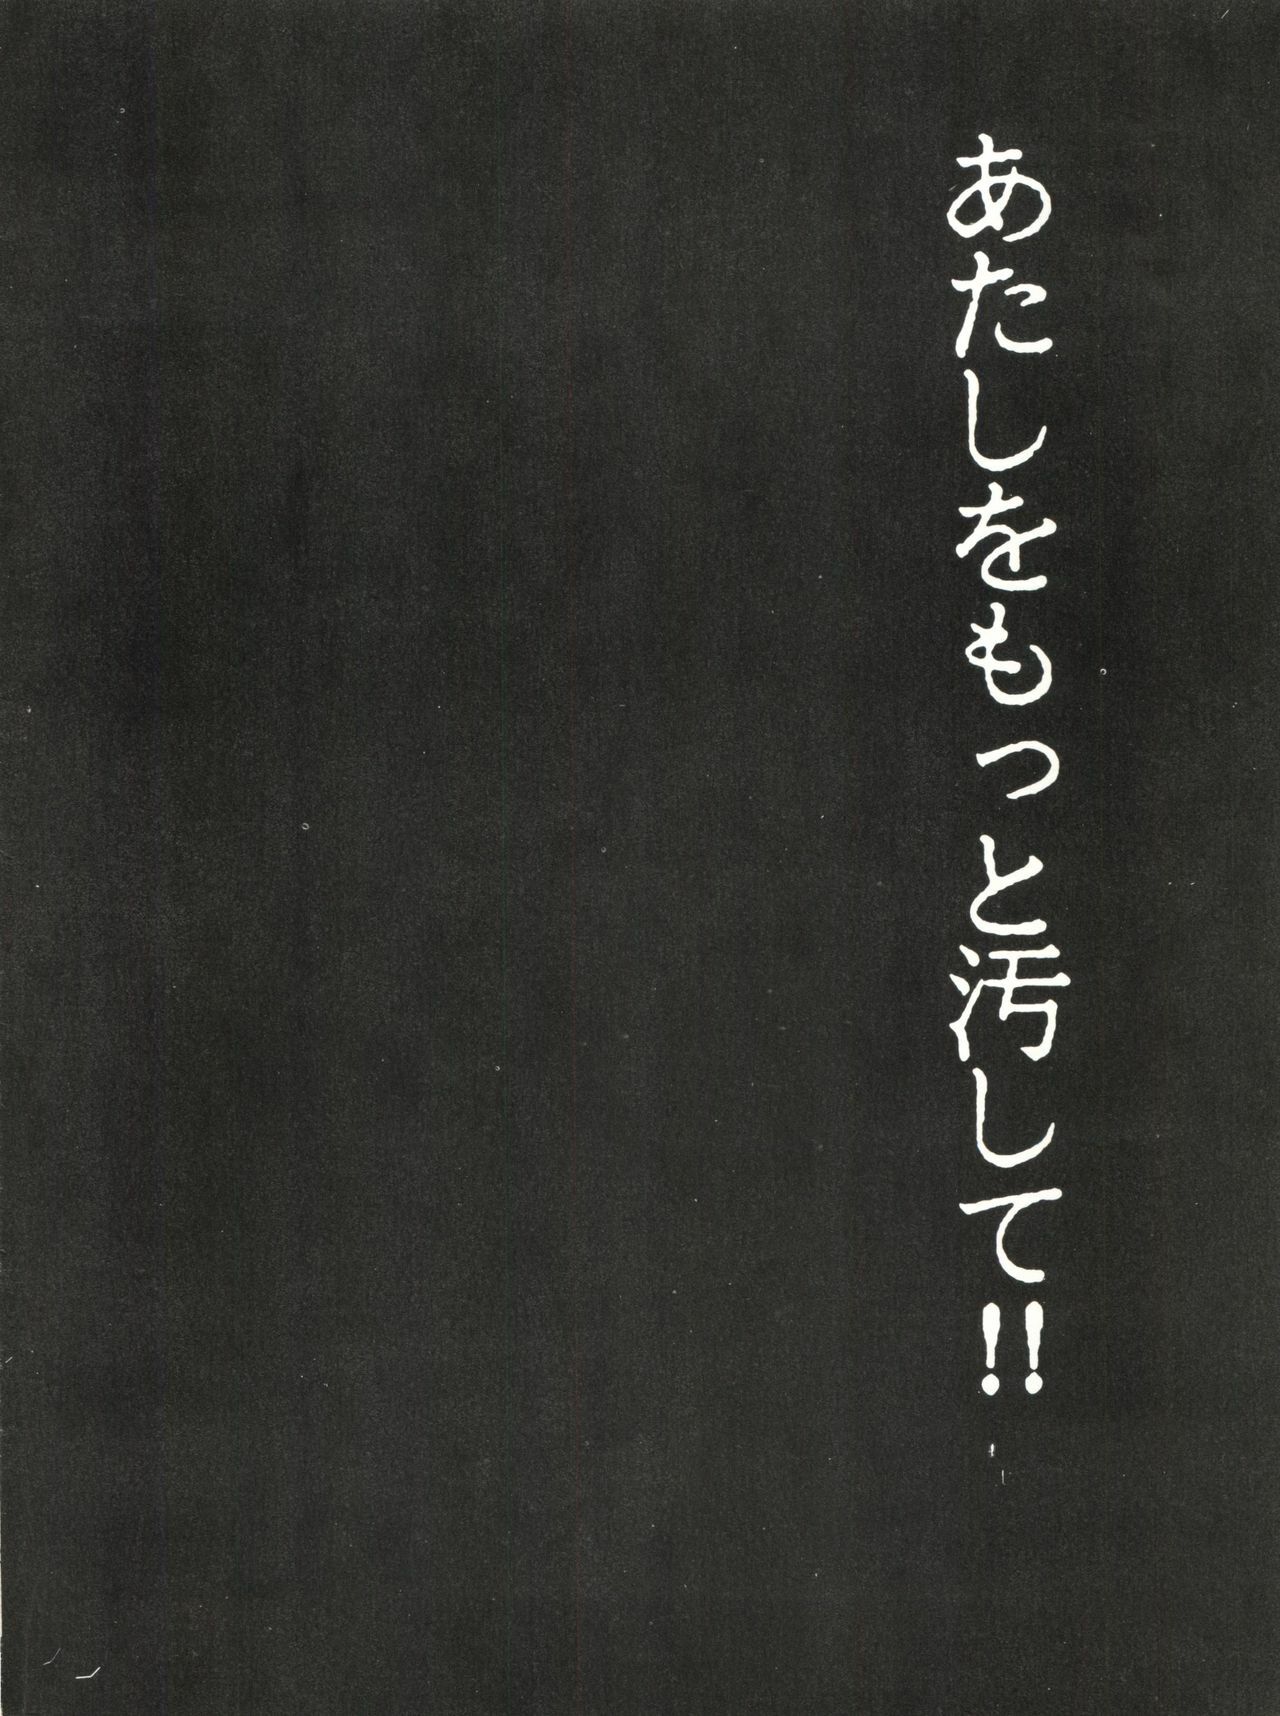 あたしをもっと汚して!!